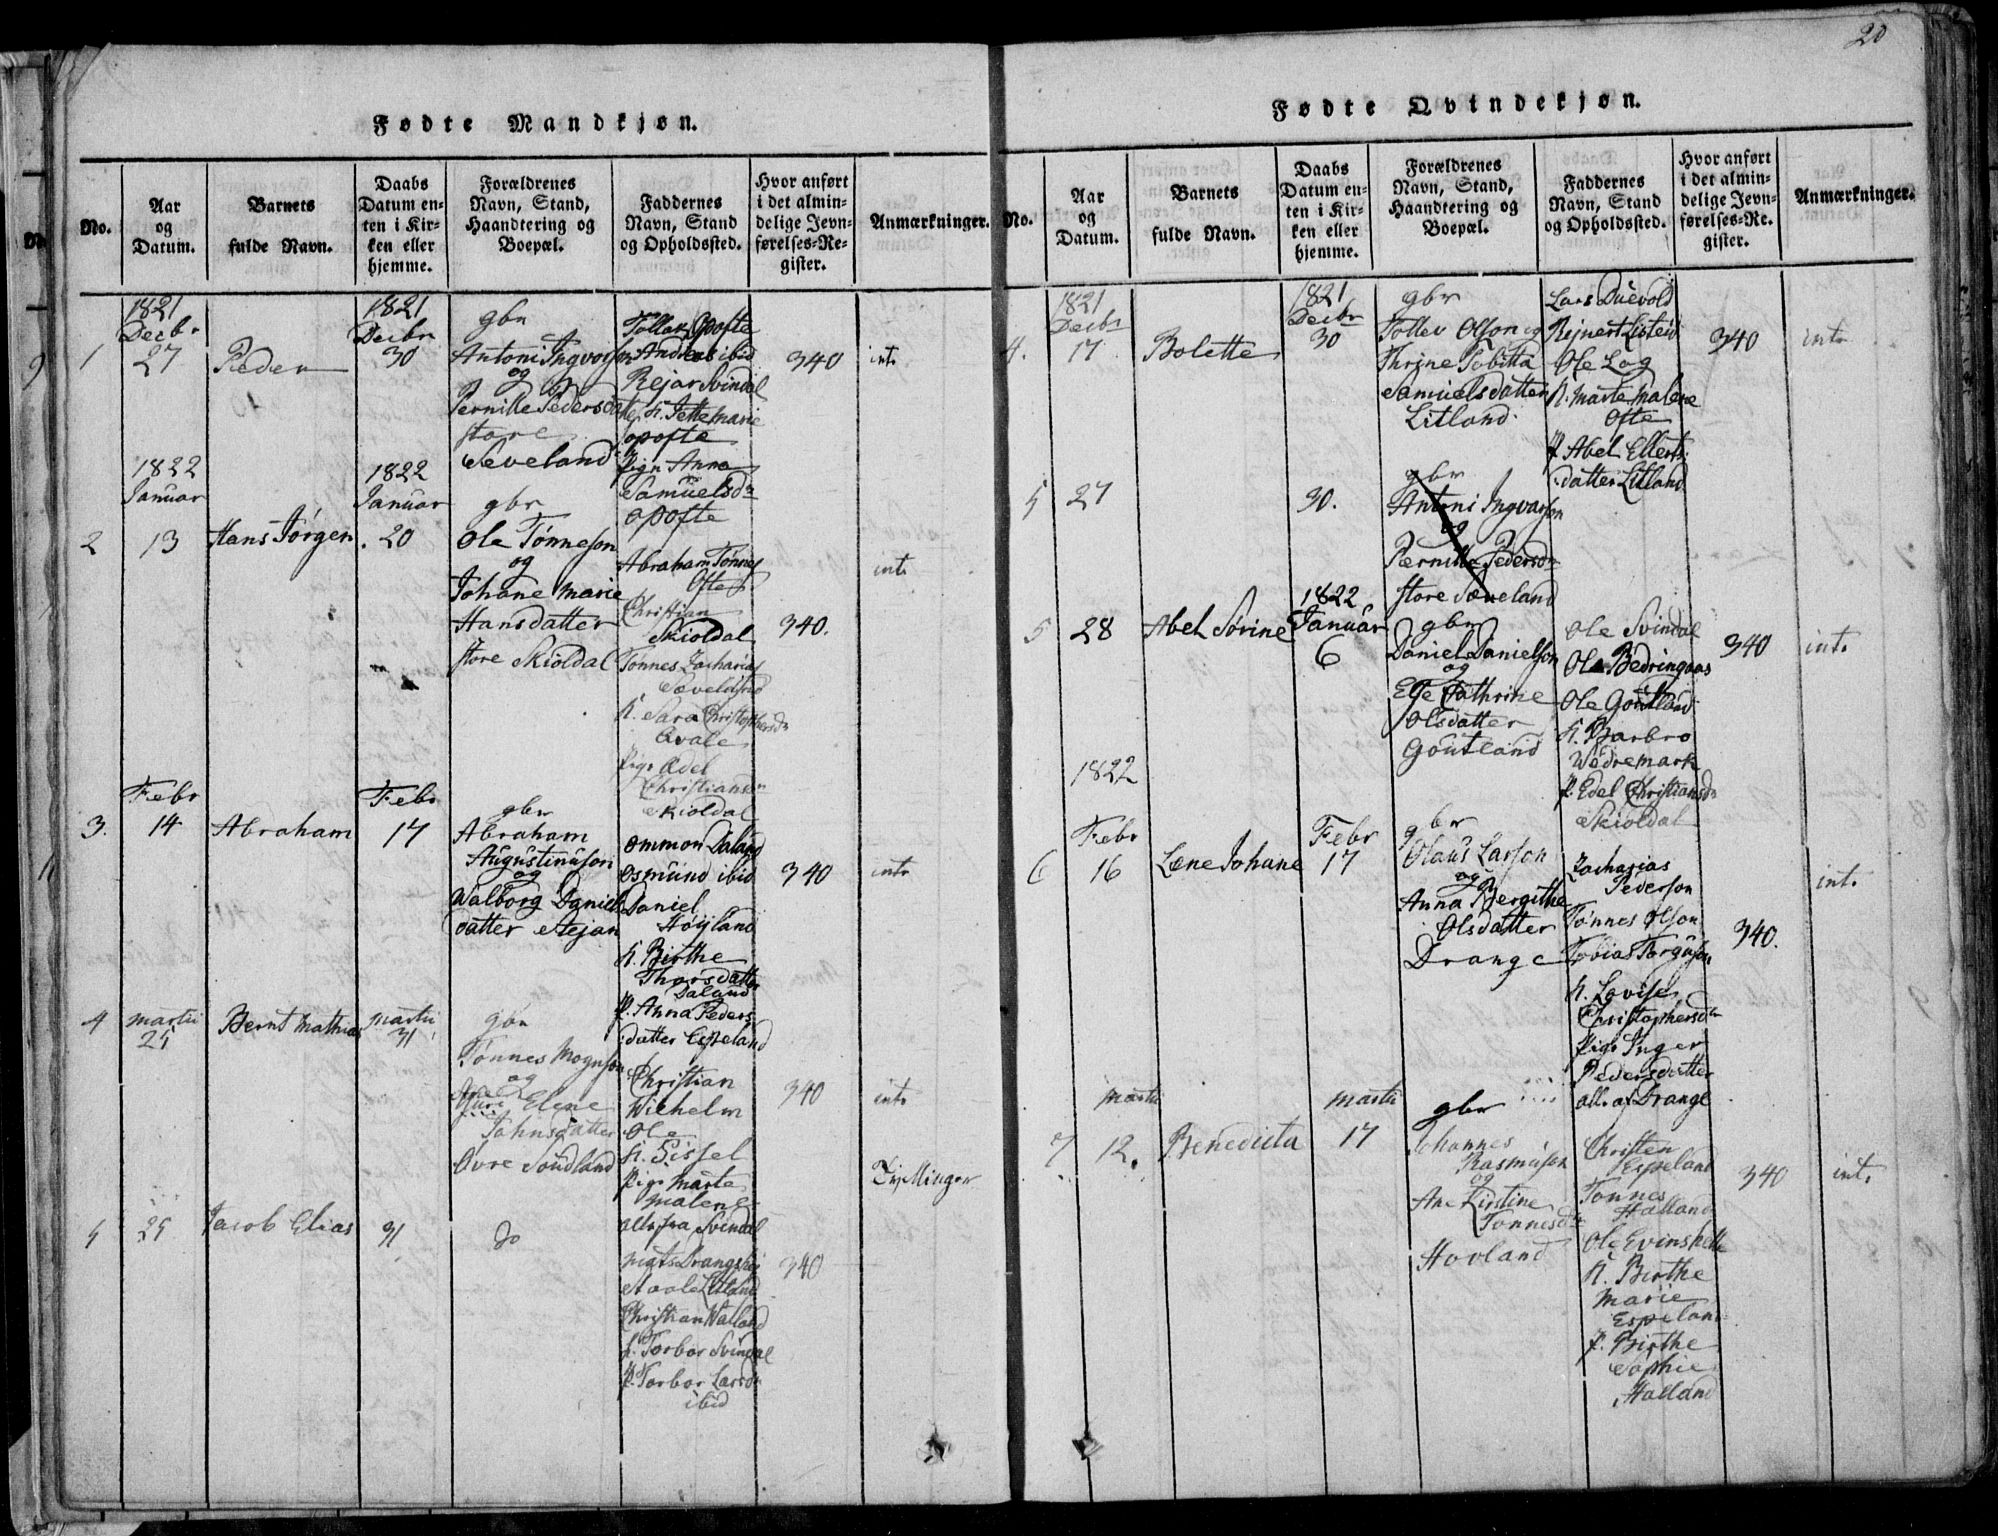 20
Fødte Mandkjøn.
No.
Aar
og
Datum.
Barnets
fulde Navn.
Daabs
Datum en-
ten i Kir-
ken eller
hjemme.
Forældrenes
Navn, Stand,
Haandtering og
Boepæl.
Faddernes
Navn, Stand
og Opholdssted.
Hvor anført
i det almin-
delige Jevn-
førelses-Re-
gister.
Anmærkninger.
1
1821
Decbr
27
Peder
1821
Decbr
30
gbr
Antoni Ingvorson
og
Pernille Pedersdatter
store
Seveland
Tollak Opofte
Andreas ibid
Rejar Svindal
K. Jette Marie
opofte
Pige Anna
Samuelsdr
opofte
340
int.
2
1822
Januar
13
Hans Jørgen
1822
Januar
20
gbr
Ole Tønneson
og
Johane Marie
Hansdatter
store Skioldal
Abraham Tønnes
Ofte
Christian
Skioldal
Tønnes Zacharias
Sæveland
K. Sara Christophersdr
Qvale
Pige Edel
Christiansdr
Skioldal
340.
int.
3.
Febr
14
Abraham
Febr
17
gbr
Abraham
Augustinuson
og
Walborg Daniels
datter Stejan
Ommon Daland
Osmund ibid
Daniel
Høyland
K. Birthe
Thorsdatter
Daland
P. Anna Peders
datter Espeland
340
int.
4
Martii
25
Bernt Mathias
Martii
31
gbr
Tønnes Mognson
og
Elene
Johnsdatter
Øvre Soudland
Christian
Wilhelm
Ole
K. Sissel
Pige Marte
Malene
alle fra Svindal
340
int.
Tvillinger
5
25
Jacob Elias
31
do
Mats Drangshej
Staale Litland
Christian Walland
K. Torbor Svindal
P. Torbor Larsdr
ibid
340
Fødte Qvindekjøn.
No.
Aar
og
Datum.
Barnets
fulde Navn.
Daabs
Datum en-
ten i Kir-
ken eller
hjemme.
Forældrenes
Navn, Stand,
Haandtering og
Boepæl.
Faddernes
Navn, Stand
og Opholdssted.
Hvor anført
i det almin-
delige Jevn-
førelses-Re-
gister.
Anmærkninger.
4.
1821
Decbr
17
Bolette
1821
Decbr
30
gbr
Tollev Olson og
Thrine Tobitta
Samuelsdatter
Litland.
Lars Duevold
Rejnert Listeid
Ole Log
K. Marte Malene
Ofte
P. Abel Ellerts
datter Litland
340
int.
5
27
30.
gbr
Antoni Ingvarson
og
Pernille Pedersdr
store Sæveland
5
28
Abel Sørine
1822
Januar
6
gbr
Daniel Danielson
og
Else Cathrine
Olsdatter
Goutland
Ole Svindal
Ole Bedringaas
Ole Goutland
K. Barbro
Wedremark
P. Edel Christiansdr
Skioldal
340
int.
6
1822
Febr
16
Lene Johane
Febr
17
gbr
Olaus Larson
og
Anna Bergithe
Olsdatter
Drange
Zacharias
Pederson
Tønnes Olson
Tobias Torguson
K. Lovise
Christophersdr
Pige Inger
Pedersdatter
alle af Drange
340.
int.
7
Martii
12.
Benedicta
Martii
17
gbr
Johannes
Rasmuson
og
Ane Kirstine
Tønnesdr
Hovland
Christen
Espeland
Tønnes
Halland
Ole Evinshelle
K. Birthe
Marie
Espeland
P. Birthe
Sophie
Halland
340
int.